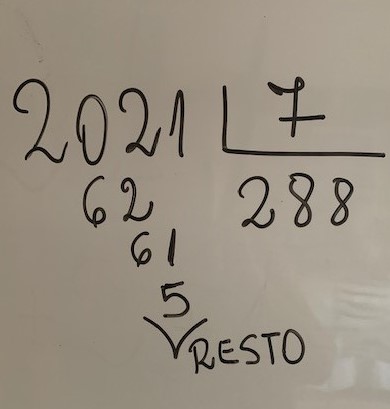 2021 7
62 288
61
5
RESTO